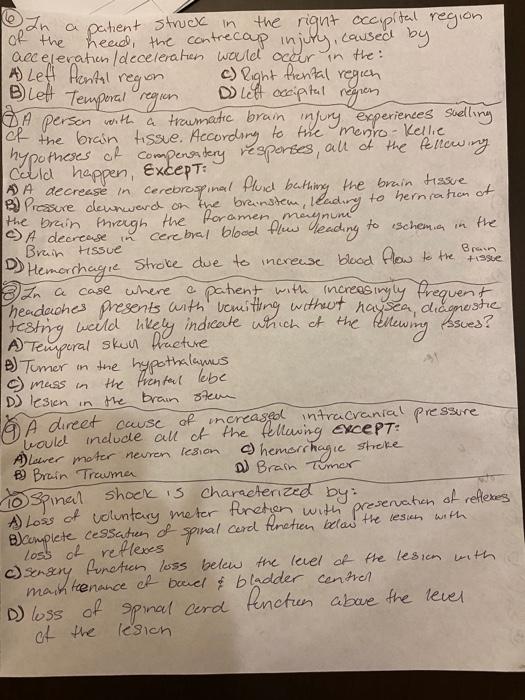 6 In a patient struck in the right occipital region
of the head, the contrecoup injury, caused by
acceleration/deceleration would occur in the:
A) Left frontal region C) Right frontal region
B) Left Temporal region D) Left occipital region
7) A person with a traumatic brain injury experiences swelling
of the brain tissue. According to the Monro-Kellie
hypotheses of compensatory responses, all of the following
Could happen, EXCEPT:
A) A decrease in cerebrospinal fluid bathing the brain tissue
B) Pressure downward on the brainstem, leading to herniation of
the brain through the foramen magnum
C) A decrease in cerebral blood flow leading to ischemia in the
Brain tissue
D) Hemorrhagic Stroke due to increase blood flow to the Brain tissue
8) In a case where a patient with increasingly frequent
headaches presents with vomitting without naysea, diagnostic
testing would likely indicate which of the following issues?
A) Temporal skull fracture
B) Tumor in the hypothalamus
C) mass in the frontal lobe
D) lesion in the brain stem
9) A direct cause of increased intracranial pressure
would include all of the following EXCEPT:
A) Lower motor neuron lesion C) hemorrhagic stroke
B) Brain Trauma D) Brain Tumor
10 Spinal shock is characterized by:
A) Loss of voluntary motor function with preservation of reflexes
B) complete cessation of spinal cord function below the lesion with
loss of reflexes
C) sensory function loss below the level of the lesion with
maintenance of bowel & bladder control
D) loss of spinal cord function above the level
of the lesion